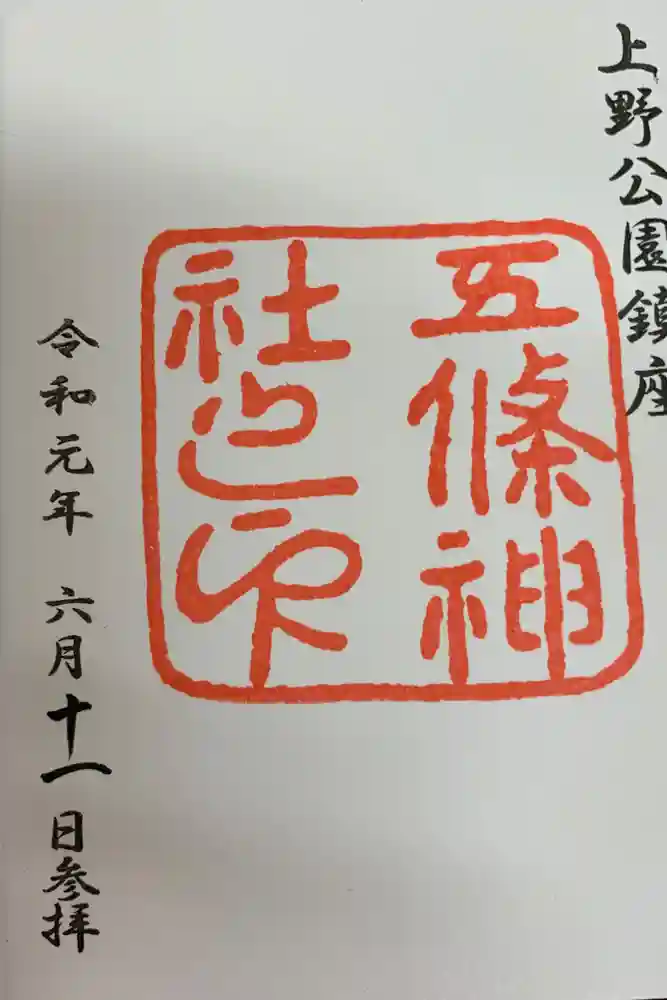 上野公園鎮座
五條神
社之印
令和元年 六月十一日参拝